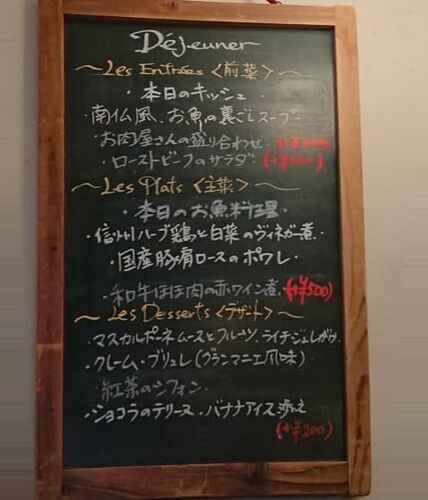 Déjeuner
~Les Entrées <前菜>~
・本日のキッシュ
・南仏風、お魚の裏ごしスープ
・お肉屋さんの盛り合わせ
・ローストビーフのサラダ (+¥500)
~Les Plats <主菜>~
・本日のお魚料理
・信州ハーブ鶏と白菜のヴィネガー煮
・国産豚肩ロースのポワレ
・和牛ほほ肉の赤ワイン煮 (+¥500)
~Les Desserts <デザート>~
・マスカルポーネムースとフルーツ、ライチジュレがけ
・クレーム・ブリュレ (グランマニエ風味)
・紅茶のシフォン
・ショコラのテリーヌ、バナナアイス添え
(+¥200)